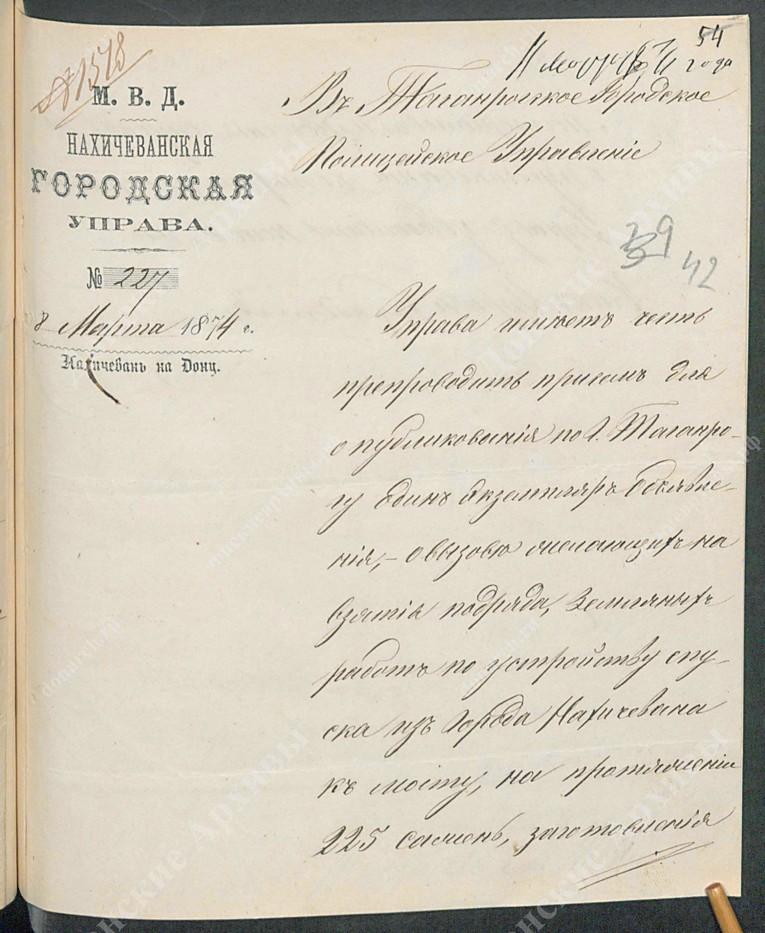 54
11 марта 1874 года
№ 1578
М. В. Д.
НАХИЧЕВАНСКАЯ
ГОРОДСКАЯ
УПРАВА.
№ 227
8 Марта 1874 г.
Нахичевань на Дону.
Въ Таганрогское Городское
Полицейское Управленіе
39
42
Управа имѣетъ честь
препроводить присемъ для
опубликованія по г. Таганро-
гу одинъ экземпляръ объявле-
нія, – о вызовѣ желающихъ на
взятіе подряда, земляныхъ
работъ по устройству спу-
ска изъ Города Нахичевана
къ мосту, на протяженіи
225 сажень, заготовленія